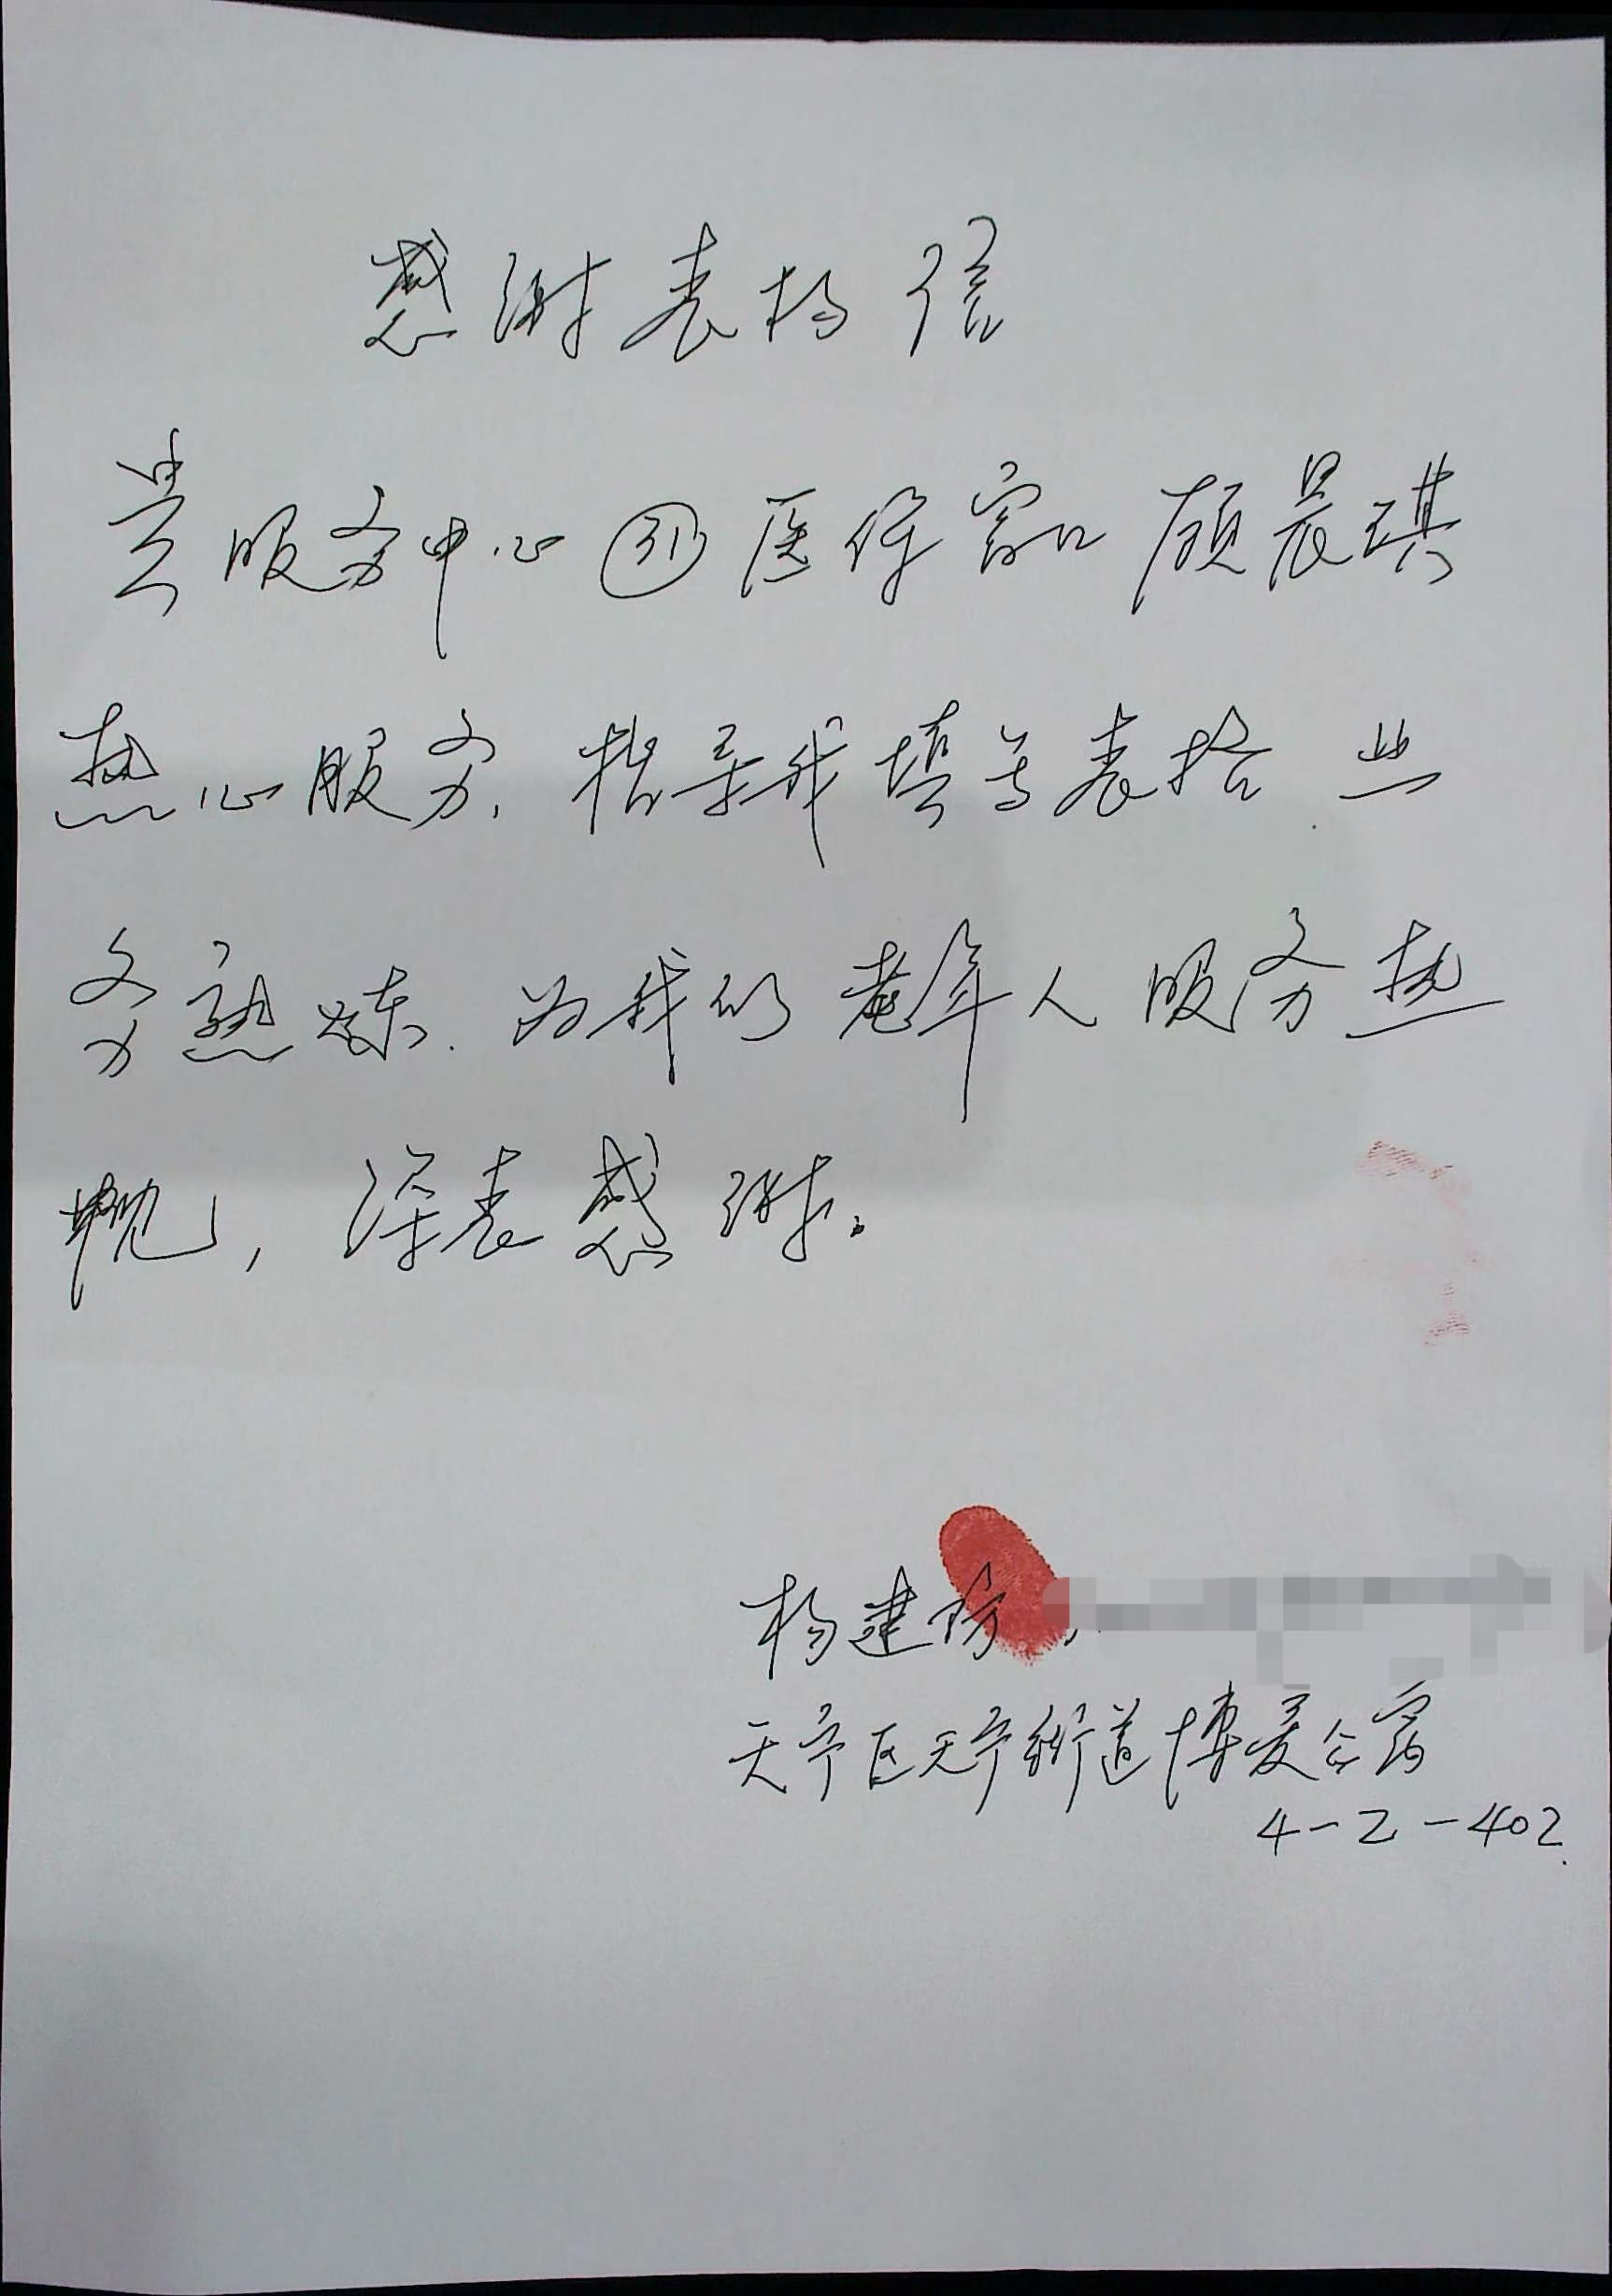 感谢表扬信
贵服务中心 31 医保窗口 顾晨琪
热心服务, 指导我填写表格 业
务熟练. 为我们老年人服务热
忱, 深表感谢.
杨建防
天宁区天宁街道博爱公寓
4-2-402.